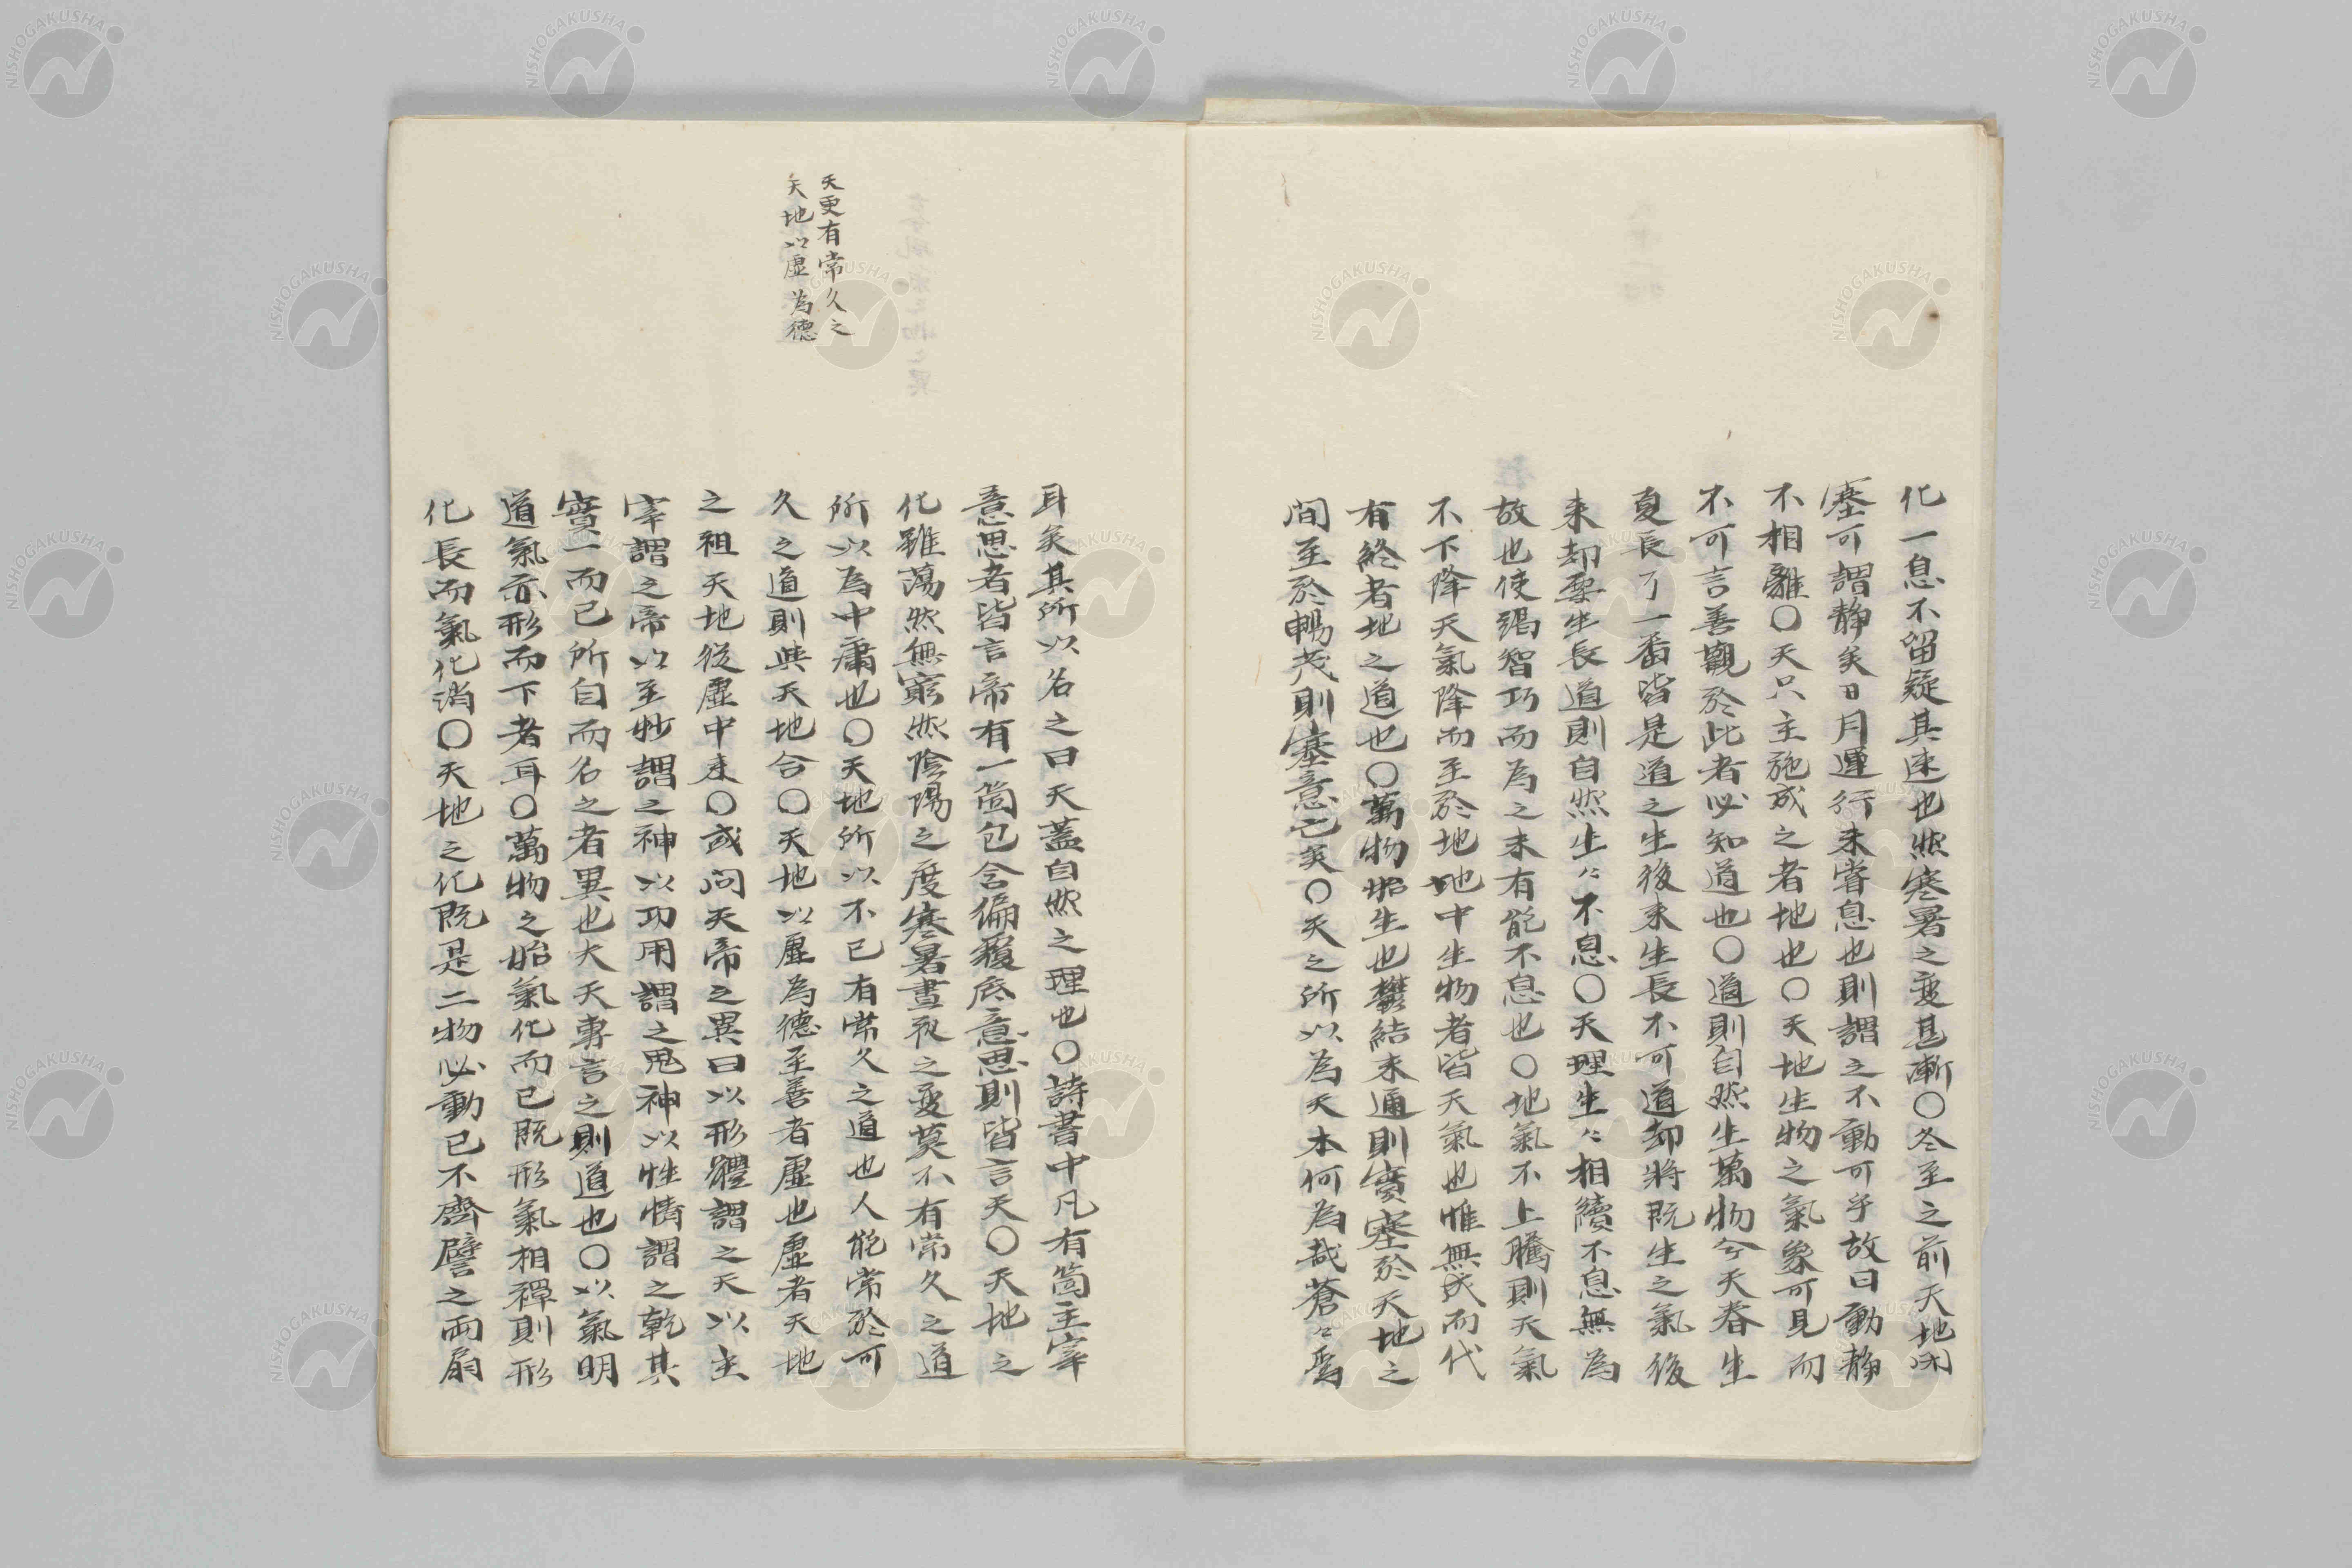 化一息不留疑其速也然寒暑之變甚漸〇冬至之前天地閉
塞可謂静矣日月運行未嘗息也則謂之不動可乎故曰動静
不相離〇天只主施成之者地也〇天地生物之氣象可見而
不可言善觀於此者必知道也〇道則自然生萬物今天春生
夏長了一番皆是道之生後来生長不可道却將既生之氣後
来却要生長道則自然生〻不息〇天理生〻相續不息無為
故也使竭智巧而為之未有能不息也〇地氣不上騰則天氣
不下降天氣降而至於地地中生物者皆天氣也惟無成而代
有終者地之道也〇萬物始生也鬱結未通則實塞於天地之
間至於暢茂則塞意亡矣〇天之所以為天本何為哉蒼〻焉
耳矣其所以名之曰天蓋自然之理也〇詩書中凡有箇主宰
意思者皆言帝有一箇包含徧覆底意思則皆言天〇天地之
化雖蕩然無窮然陰陽之度寒暑晝夜之變莫不有常久之道
所以為中庸也〇天地所以不已有常久之道也人能常於可
久之道則與天地合〇天地以虚為德至善者虚也虚者天地
之祖天地從虚中来〇或問天帝之異曰以形體謂之天以主
宰謂之帝以至妙謂之神以功用謂之鬼神以性情謂之乾其
實一而已所自而名之者異也夫天專言之則道也〇以氣明
道氣亦形而下者耳〇萬物之始氣化而已既形氣相禪則形
化長而氣化消〇天地之化既是二物必動已不齊譬之兩扇
天更有常久之
天地以虚為德